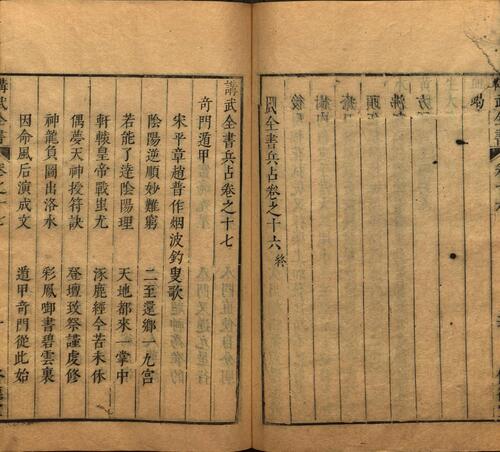 全書兵占卷之十六終
講武全書兵占卷之十七
奇門遁甲
宋平章趙普作烟波釣叟歌
陰陽逆順妙難窮 二至還鄉一九宮
若能了達陰陽理 天地都來一掌中
軒轅皇帝戰蚩尤 涿鹿經今苦未休
偶夢天神授符訣 登壇致祭謹虔修
神龍負圖出洛水 彩鳳啣書碧雲裏
因命風后演成文 遁甲奇門從此始
講武全書 卷之十七